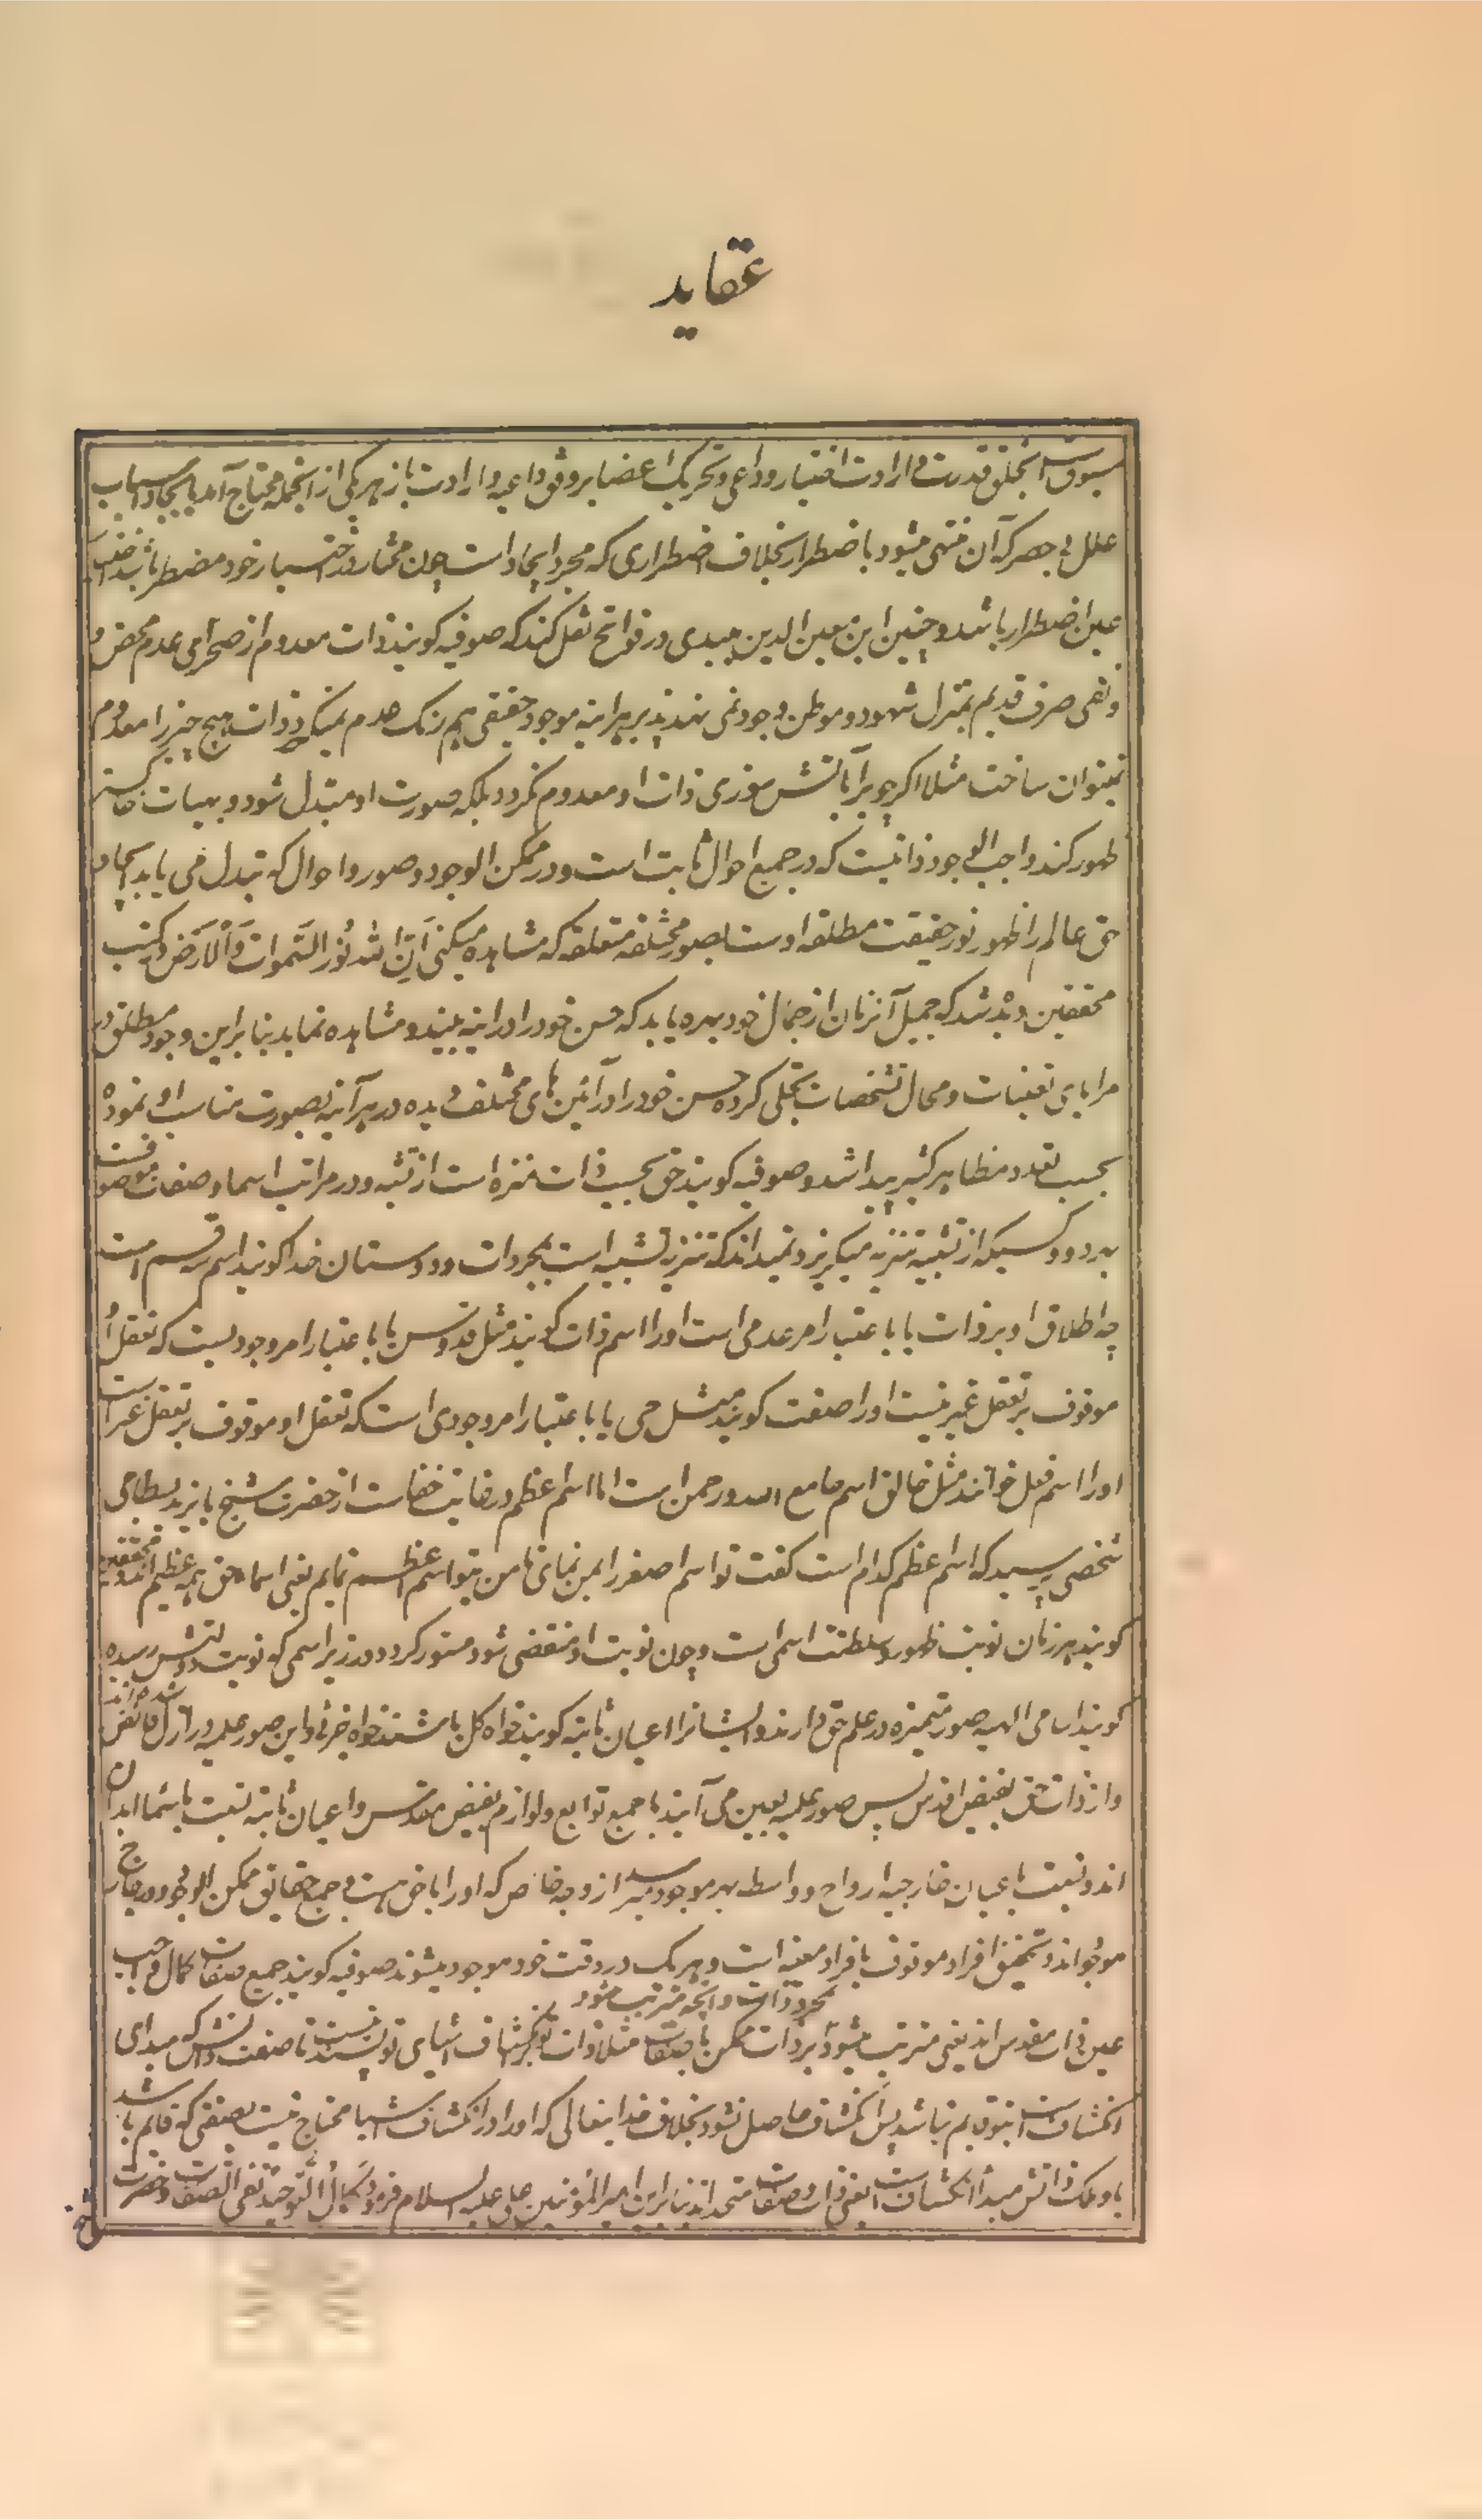 عقاید
مسبوقست بخلق قدرت و ارادت اختیار و دواعی و تحریک اعضا بر وفق داعیه و ارادت باز هر یکی از انجمله محتاج آمد بایجاد اسباب
علل بی حصر که آن منتهی میشود باضطرار بخلاف اضطراری که مجرد ایجاد است چون مختار در اختیار خود مضطر باشد اختیار
عین اضطرار باشد و چنین ابن معین الدین میبدی در فواتح نقل کند که صوفیه کویند ذات معدوم از صحرای عدم محض و
و نفی صرف قدیم بمنزل شهود و موطن وجود نمی نهد پذیر هر اینه موجود حقیقی هم رنک عدم نمیکیرد و ذات هیچ چیز را معدوم
نمیتوان ساخت مثلا اکر چوب را بآتش سوزی ذات او معدوم نکردد بلکه صورت او مبتدل شود و بهیات خاکستر
ظهور کند واجب الوجود ذاتیست که در جمیع احوال ثابت است و در ممکن الوجود و صور و احوال که تبدل می یابد ایجاد
حق عالم را ظهور نور حقیقت مطلقه اوست بصور مختلفه متعلقه که مشاهده میکنی ان الله نور السموات و الارض و در کتب
محققین دیده شد که جمیل آنزمان از جمال خود بهره یابد که حسن خود را در اینه بیند و مشاهده نماید بنا براین وجود مطلق در
مرایای تعینات و محال تشخصات تجلی کرده حسن خود را در آئین های مختلف دیده در هر آینه بصورت مناسب او نموده
بحسب تعدد مظاهر کثیر پیدا شد و صوفیه کویند حق بحسب ذات منزه است از تشبیه و در مراتب اسما و صفات موصوفست
بهر دو و کسیکه از تشبیه تنزیه میکریزد نمیداند که تنزیه تشبیه است بمجردات و دوستان خدا کویند اسم سه قسم است
چه اطلاق او بر ذات یا باعتبار امر عدمی است او را اسم ذات کویند مثل قدوس یا باعتبار امر وجودیست که تعقل او
موقوف بر تعقل غیر نیست او را صفت کویند مثل حی یا باعتبار امر وجودی است که تعقل او موقوف بر تعقل غیر است
او را اسم فعل خوانند مثل خالق اسم جامع الله و رحمن است اما اسم عظم در غایت خفاست از حضرت شیخ بایزید بسطامی
شخصی پرسید که اسم عظم کدام است کفت تو اسم اصغر را بمن نمای تا من بتو اسم اعظم نمایم یعنی اسماء حق همه عظیم اند و محققین
کویند هر زمان نوبت ظهور و سلطنت اسمی است و چون نوبت او منقضی شود مستور کردد در زیر اسمی که نوبت دولتش رسیده
کویند اسامی الهیه صور متمیزه در علم حق دارند و ایشانرا اعیان ثابته کویند خواه کل باشند خواه جزئی و این صور علمیه در ازل فائض شده اند
و از ذات حق بفیض اقدس پس صور علمیه بعین می آیند با جمیع توابع و لوازم بفیض مقدس و اعیان ثابته نسبت باسما ابدان
اند و نسبت باعیان خارجیه ارواح و واسطه بهر موجود میرسد از وجه خاص که او را با حق هست بی جمیع حقایق ممکن الوجود و در خارج
موجود اند و تحقیق افراد موقوف بافراد معینه است و هر یک در وقت خود موجود میشوند صوفیه کویند جمیع صفات کمال واجب
عین ذات مقدس اند یعنی مترتب میشود بر ذات ممکن با صفات مجرد ذات و آنچه مترتب میشود مثلا ذات تو در انکشاف اشیای تو بسنده نیست تا صفت دانش که مبدای
انکشاف است بتو قایم نباشد پس انکشاف حاصل نشود بخلاف خدایتعالی که او را در انکشاف اشیا محتاج نیست بصفتی که قایم باشد
باو بلکه ذاتش مبدأ انکشاف است یعنی ذات و صفات متحد اند بنا براین امیر المؤمنین علی علیه السلام فرمود کمال التوحید نفی الصفات و حضرت